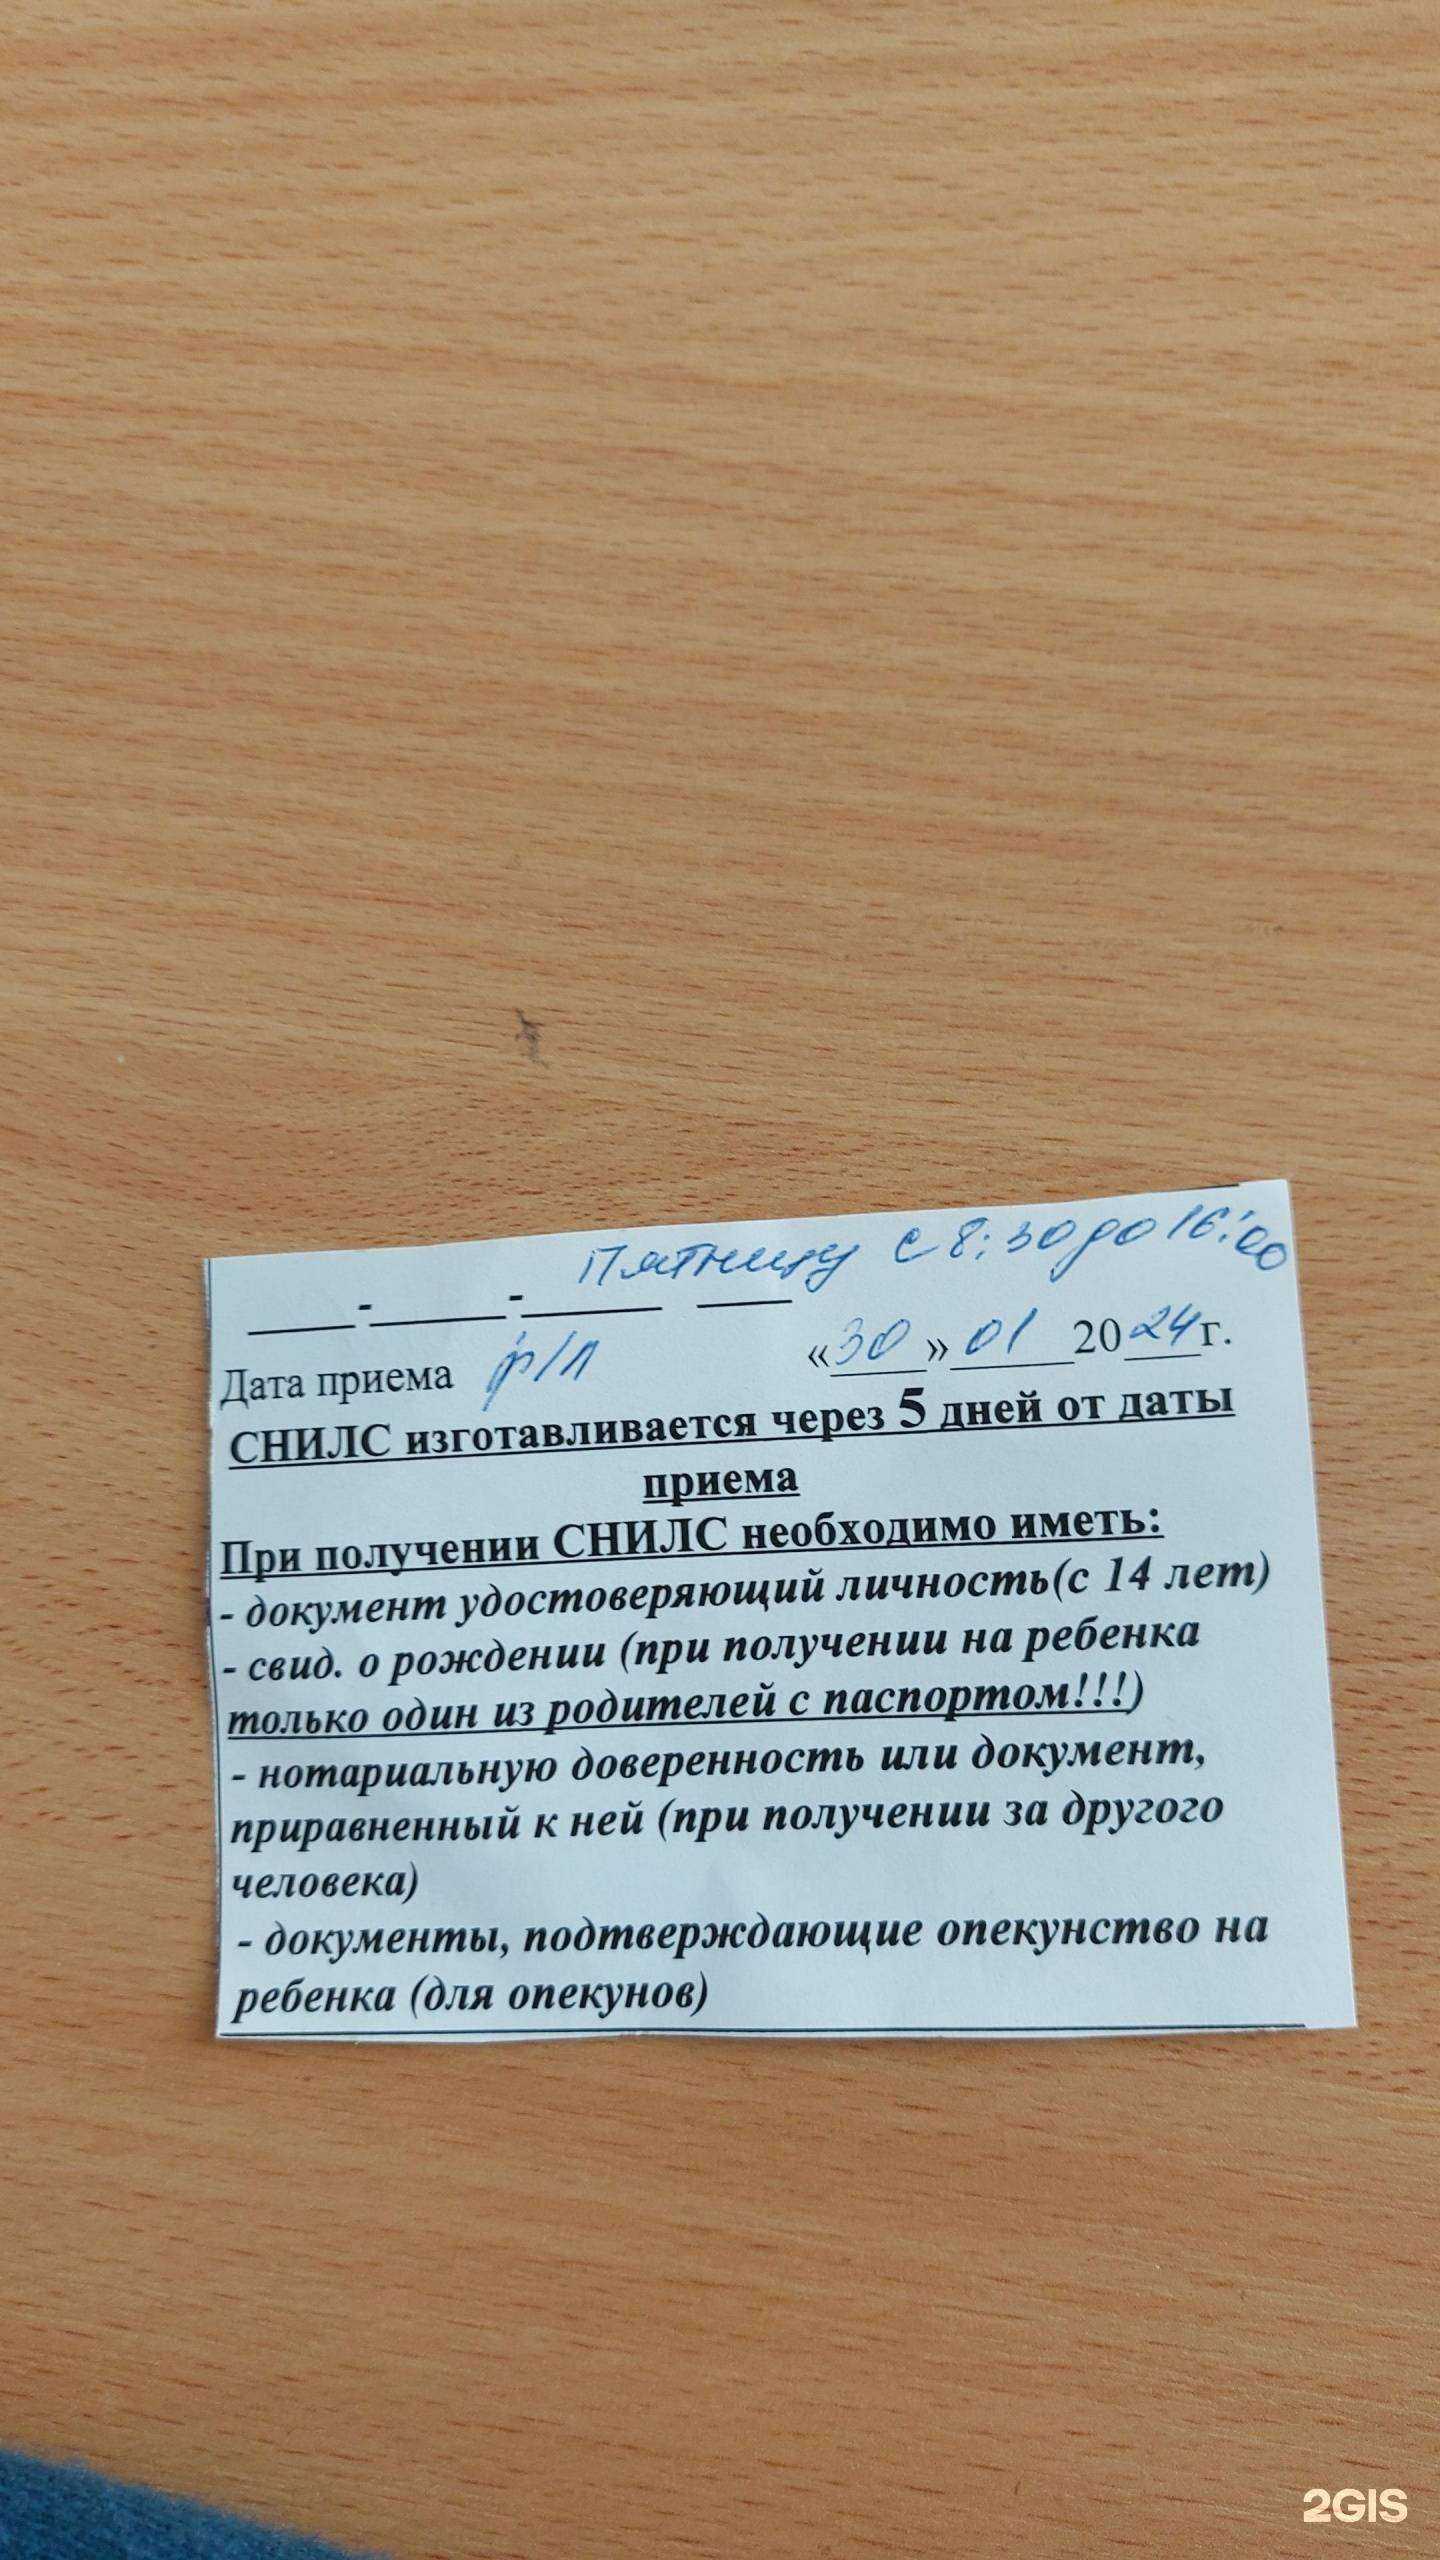 Пятницу с 8:30 до 16:00
____-_____-_____ ____
Дата приема р/л «30» 01 2024г.
СНИЛС изготавливается через 5 дней от даты
приема
При получении СНИЛС необходимо иметь:
- документ удостоверяющий личность(с 14 лет)
- свид. о рождении (при получении на ребенка
только один из родителей с паспортом!!!)
- нотариальную доверенность или документ,
приравненный к ней (при получении за другого
человека)
- документы, подтверждающие опекунство на
ребенка (для опекунов)
2GIS